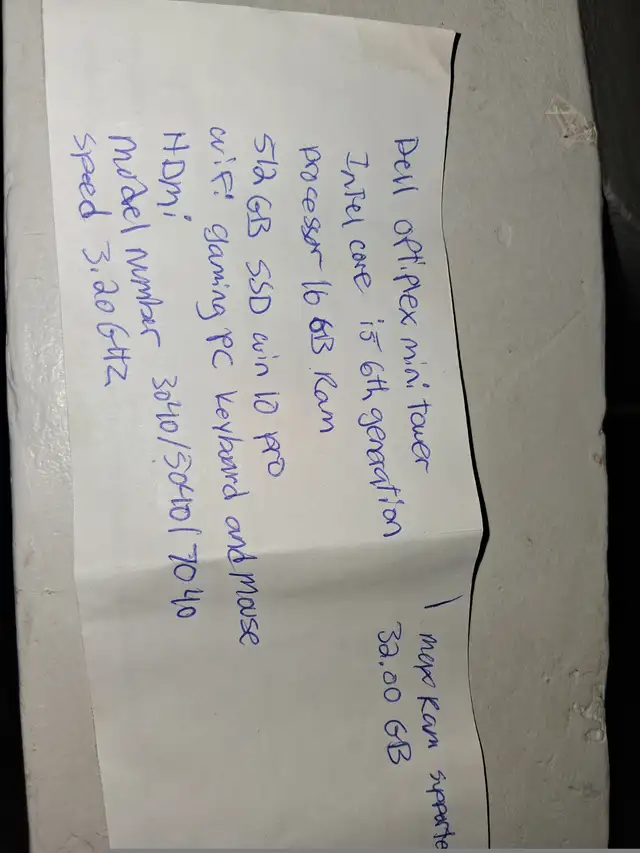 Dell optiplex mini tower
Intel core i5 6th generation
processor 16 GB Ram
512 GB SSD win 10 pro
wifi gaming PC keyboard and mouse
HDMi
model number 3040/5040/7040
speed 3.20 GHz
max Ram supporte
32.00 GB